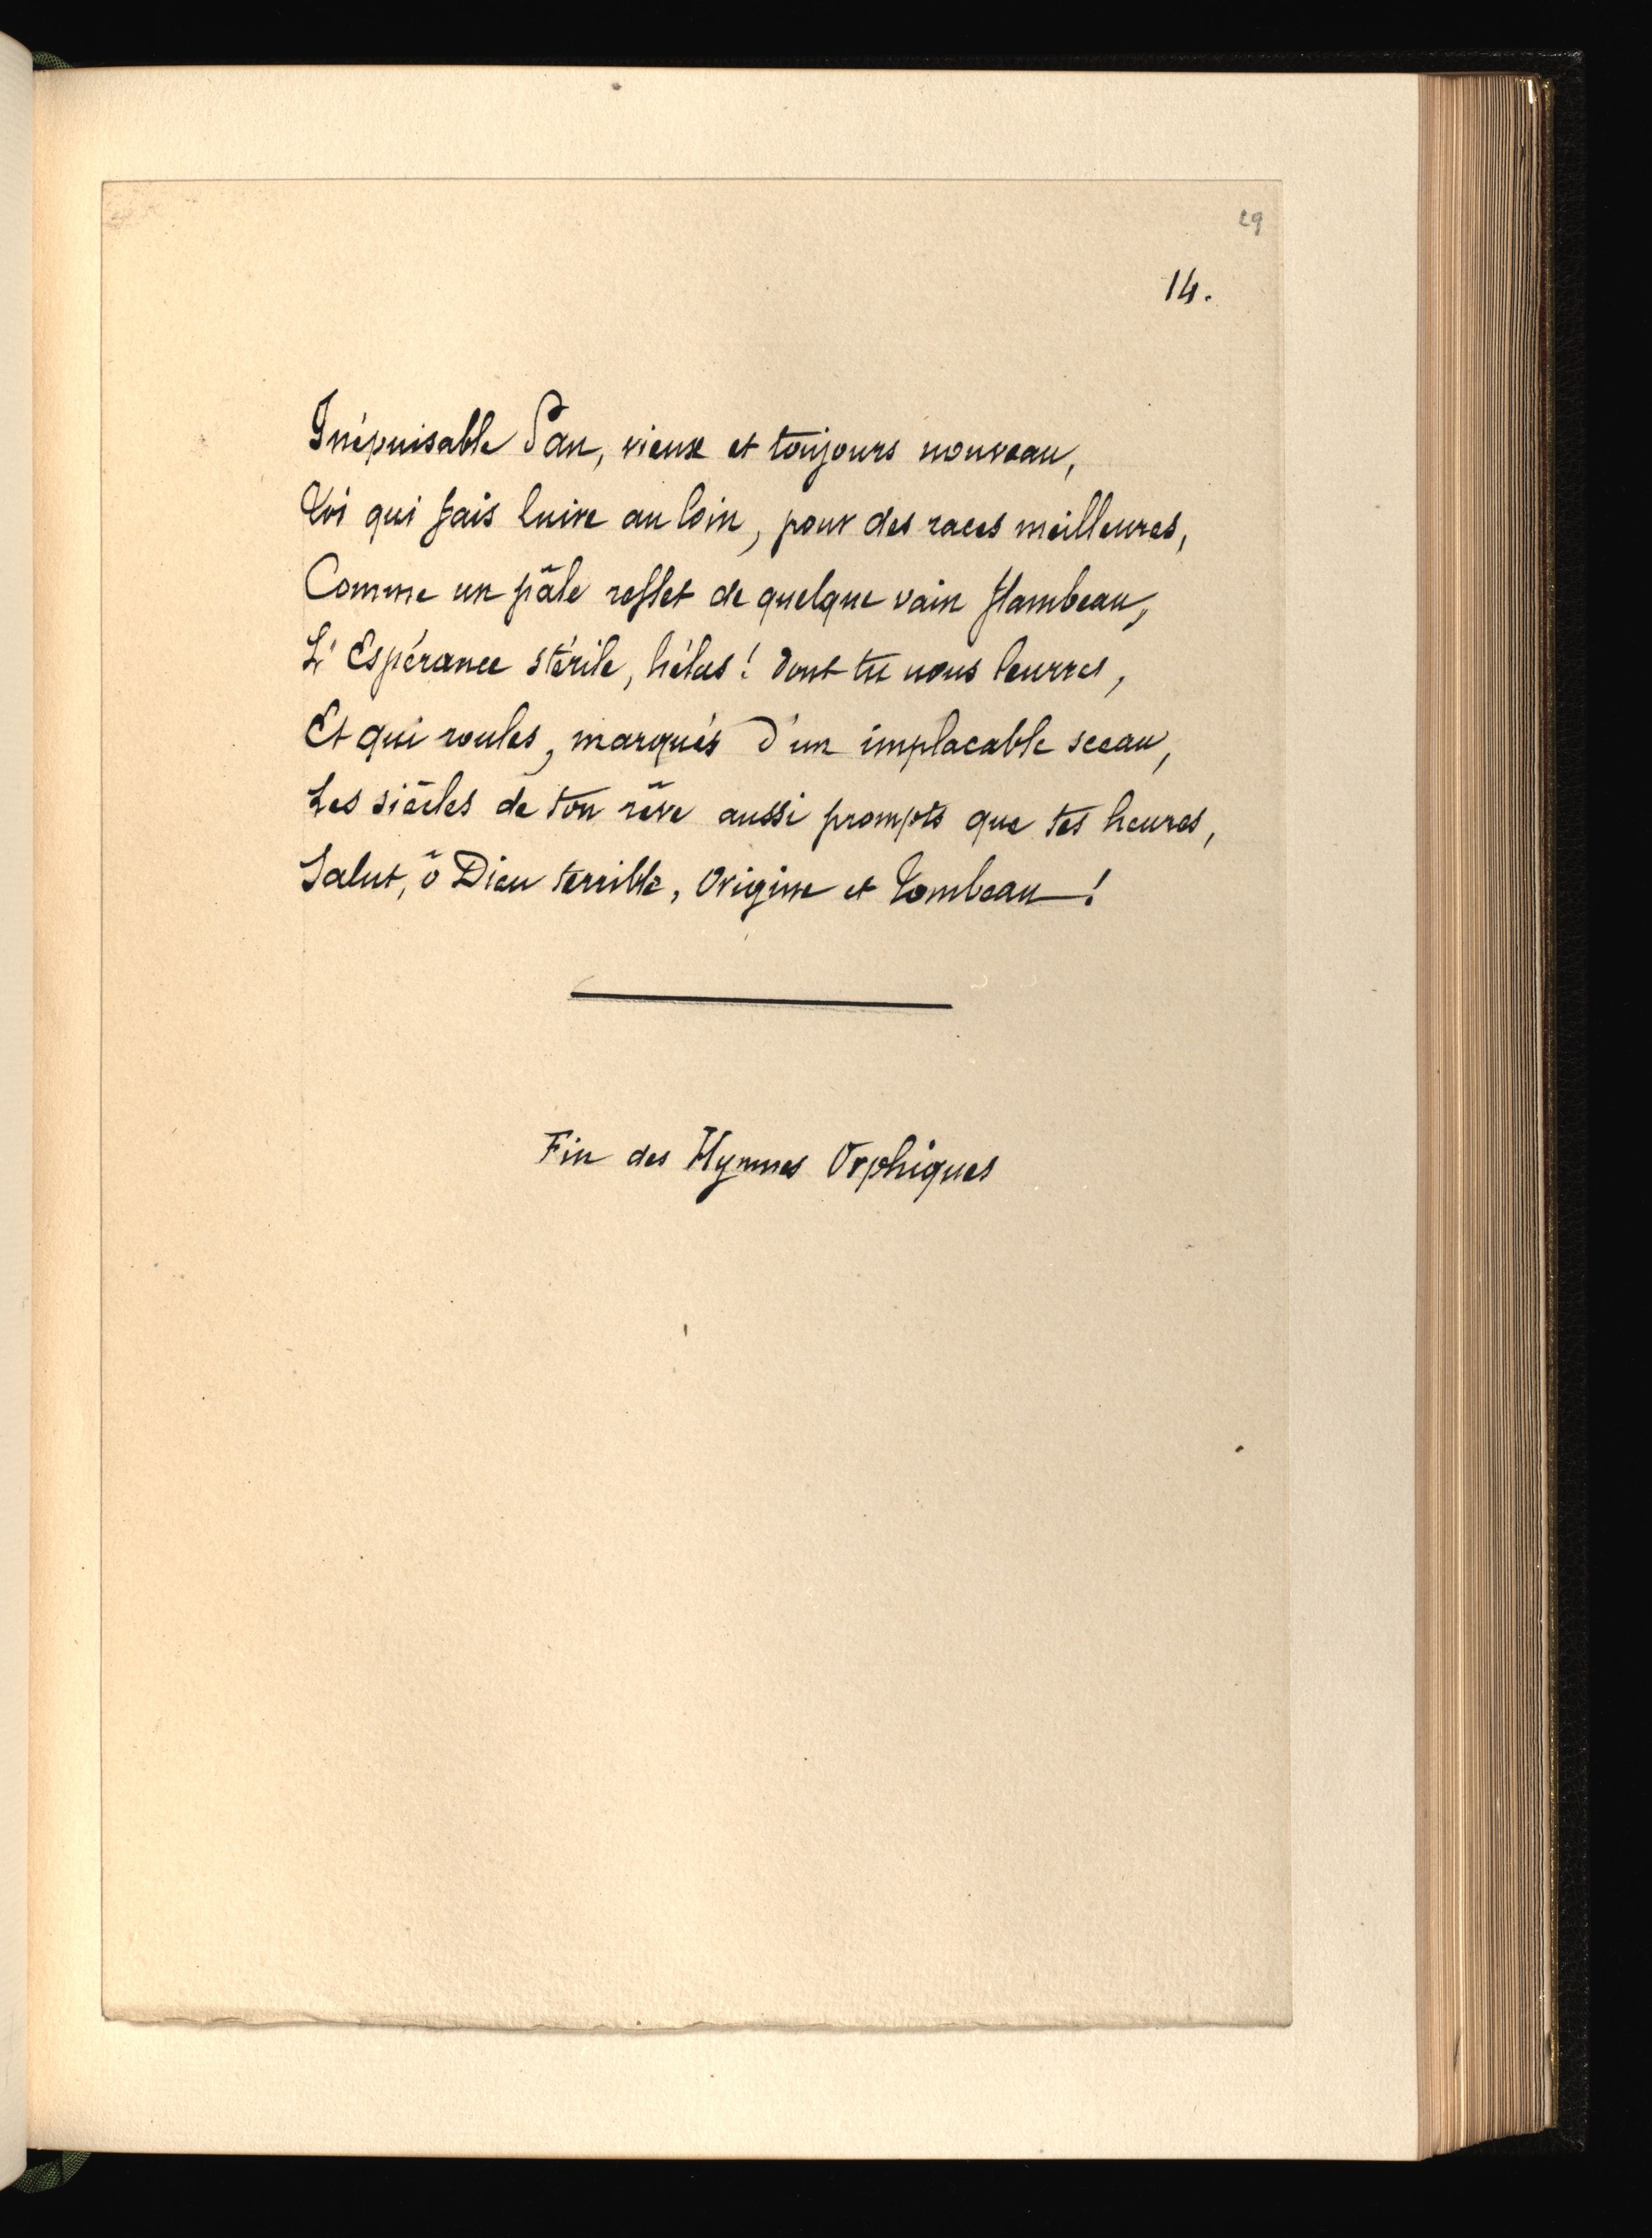 29
14.
Inépuisable Pan, vieux et toujours nouveau,
Toi qui fais luire au loin, pour des races meilleures,
Comme un pâle reflet de quelque vain flambeau,
L'Espérance stérile, hélas! dont tu nous leurres,
Et qui roules, marqués d'un implacable sceau,
Les siècles de ton rêve aussi prompts que tes heures,
Salut, ô Dieu terrible, Origine et Tombeau!
Fin des Hymnes Orphiques